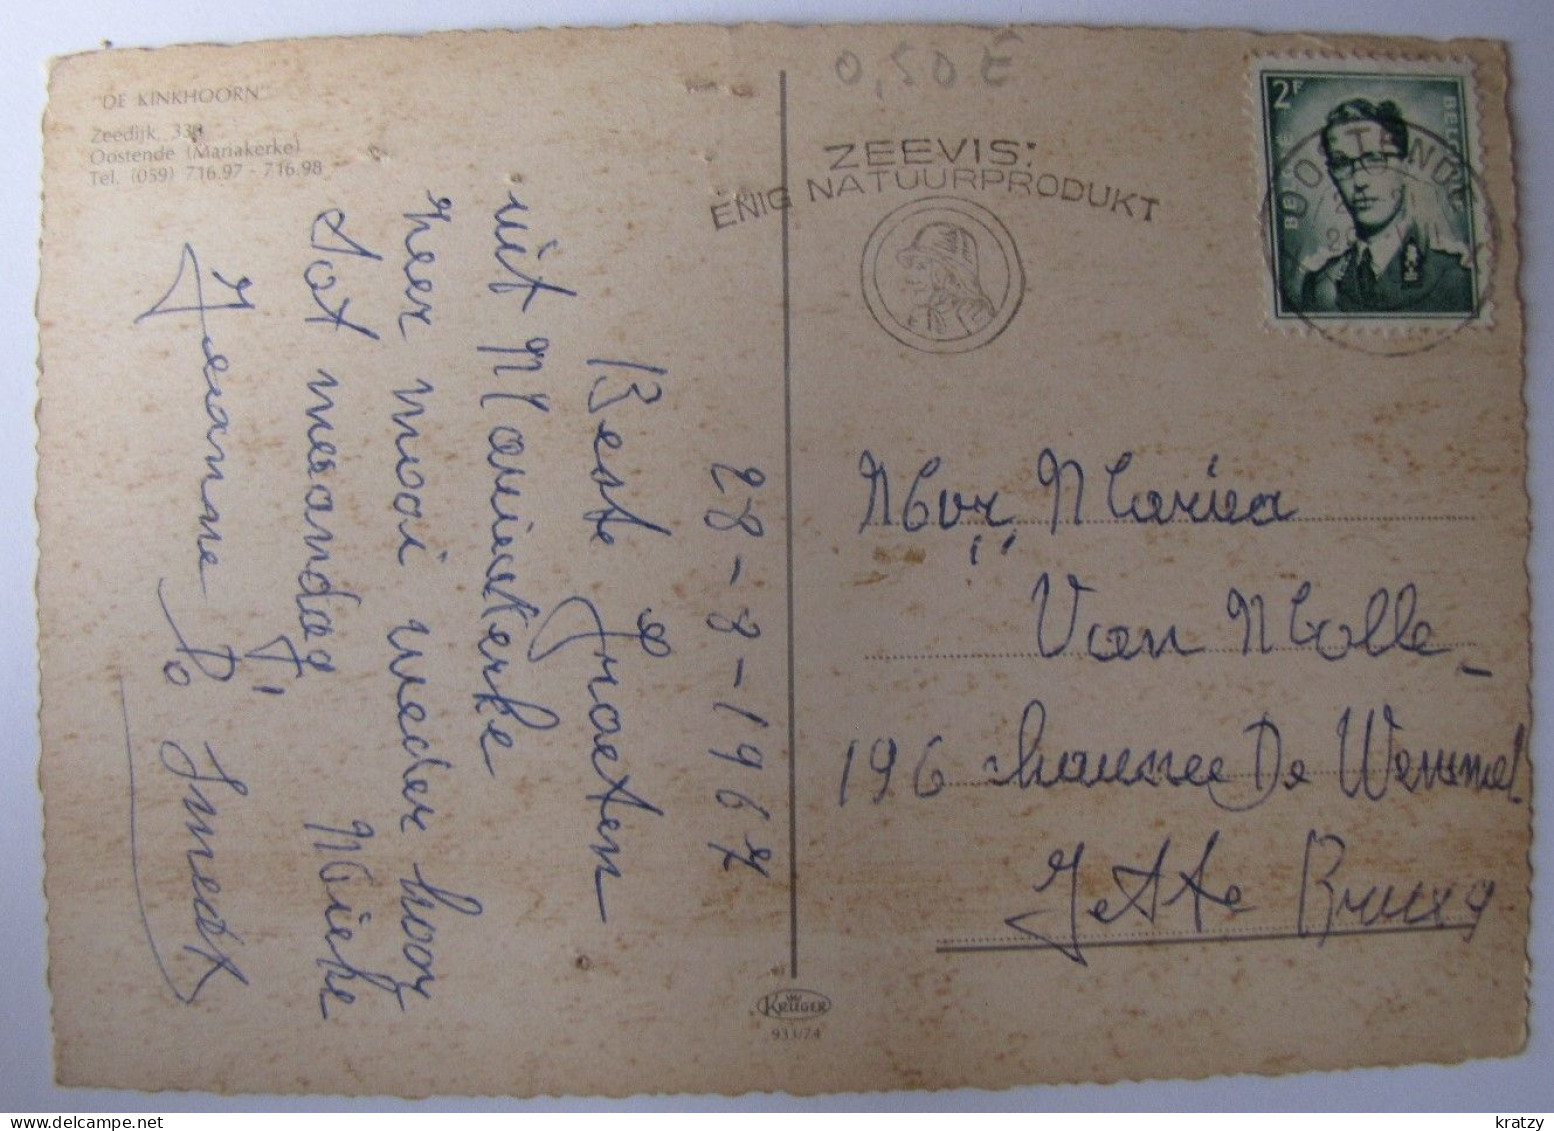 "DE KINKHOORN"
Zeedijk, 330
Oostende (Mariakerke)
Tel. (059) 716.97 - 716.98
0,50 E
ZEEVIS:
ENIG NATUURPRODUKT
2F
BELG
OOSTENDE
28-8-1967
Beste Groeten
uit Mariakerke
zeer mooi weder hoor
Tot maandag Mieke
Jeanne
Mevr Maria
Van Molle
196 chaussee De Wemmel
Jette Brux 9
KRÜGER
933/74
delcampe.net
kratzy